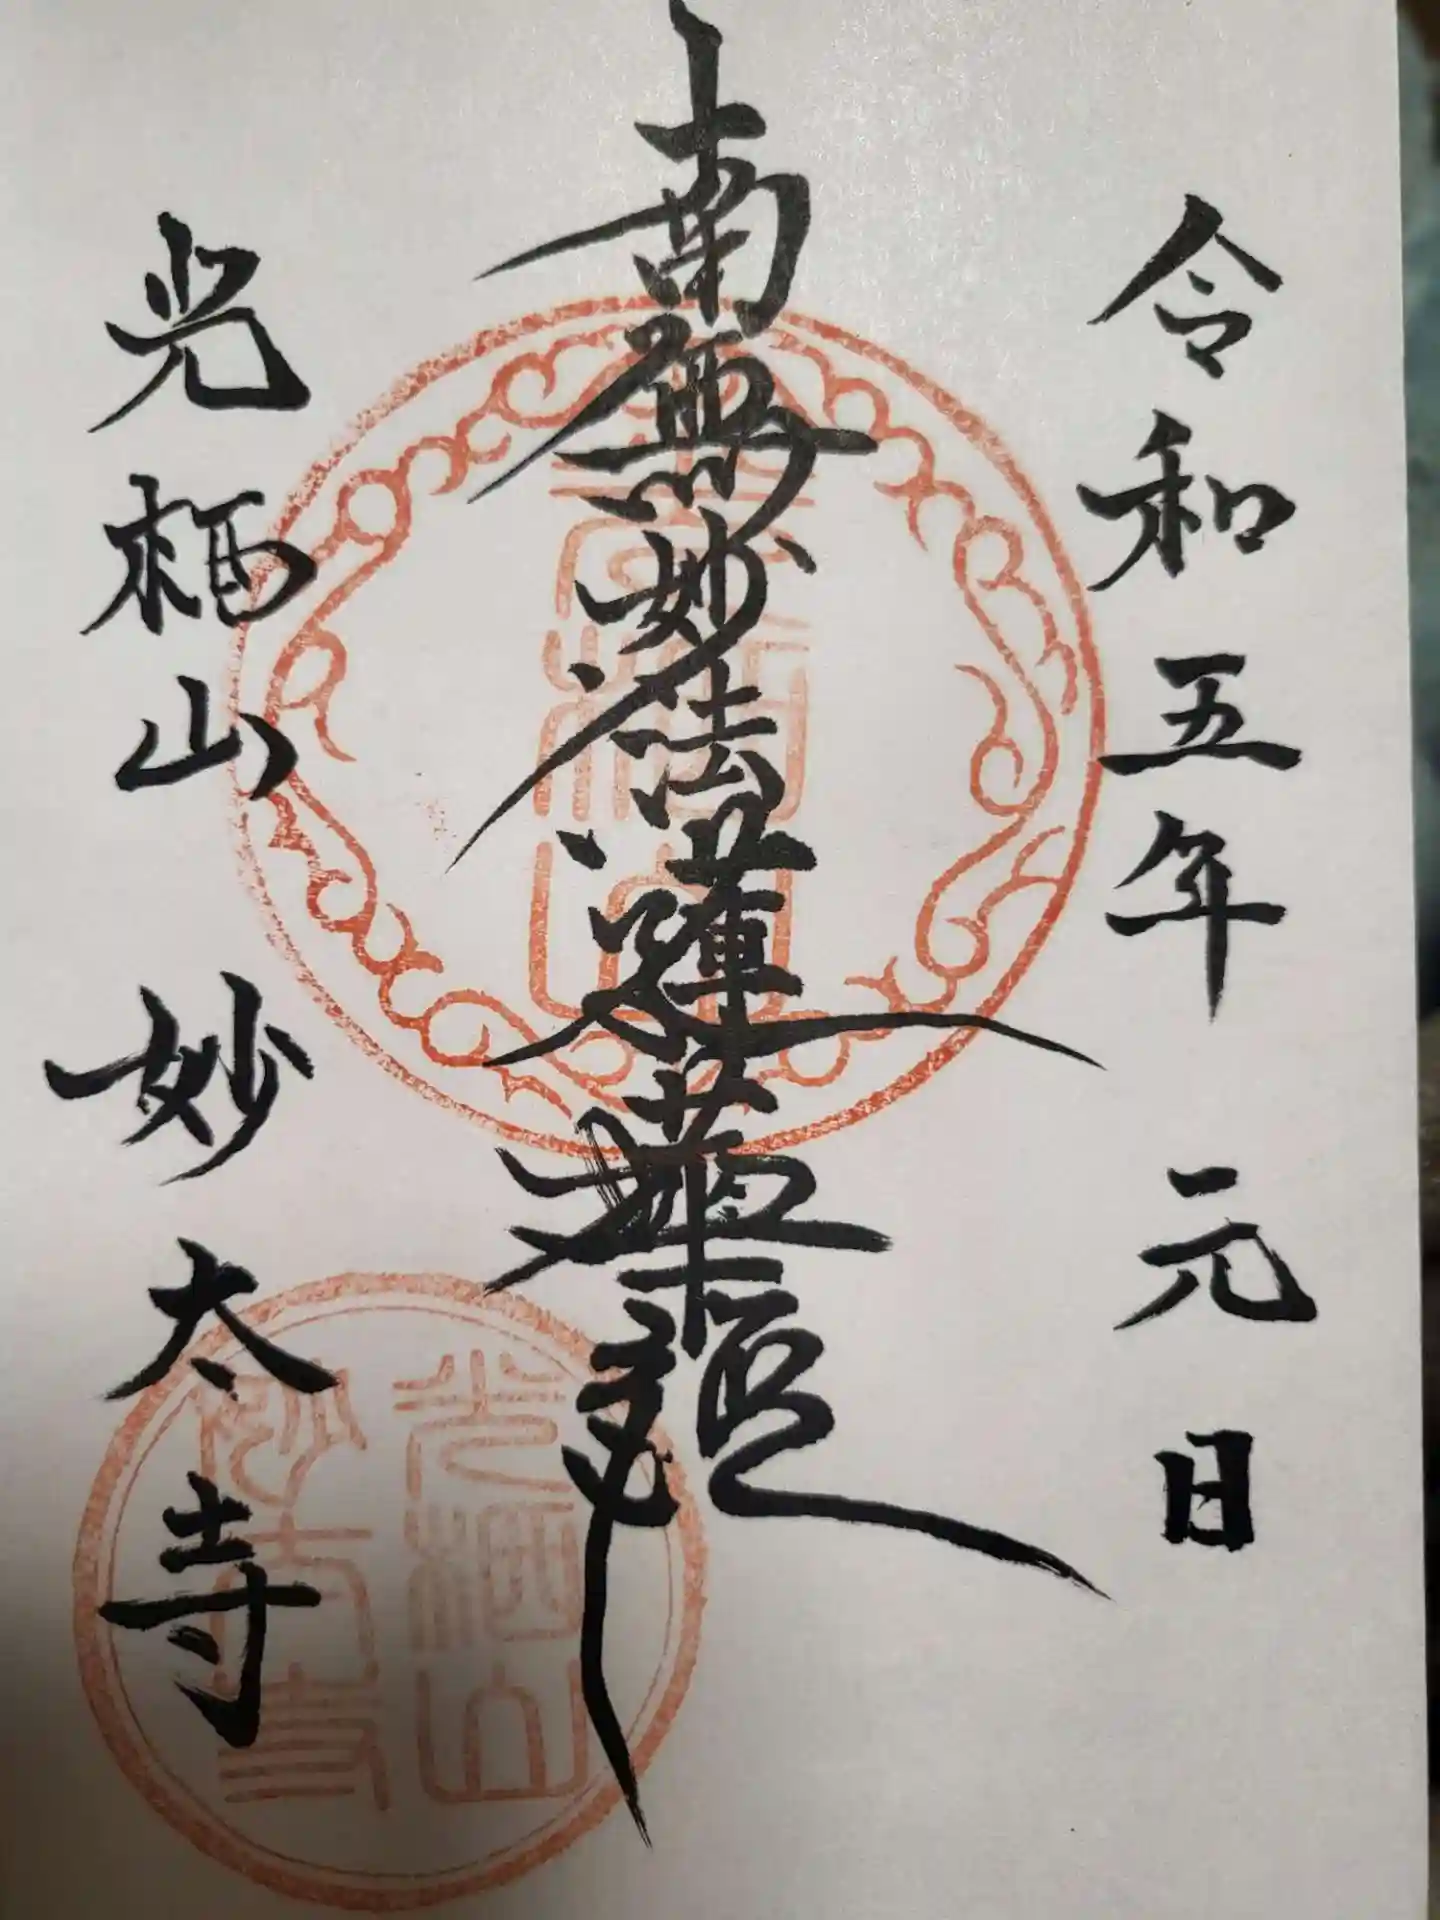 令和五年 元日
南無妙法蓮華經
光栖山 妙太寺
光栖山
妙太寺